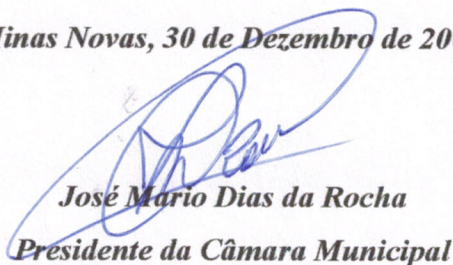 Minas Novas, 30 de Dezembro de 20
José Mario Dias da Rocha
Presidente da Câmara Municipal